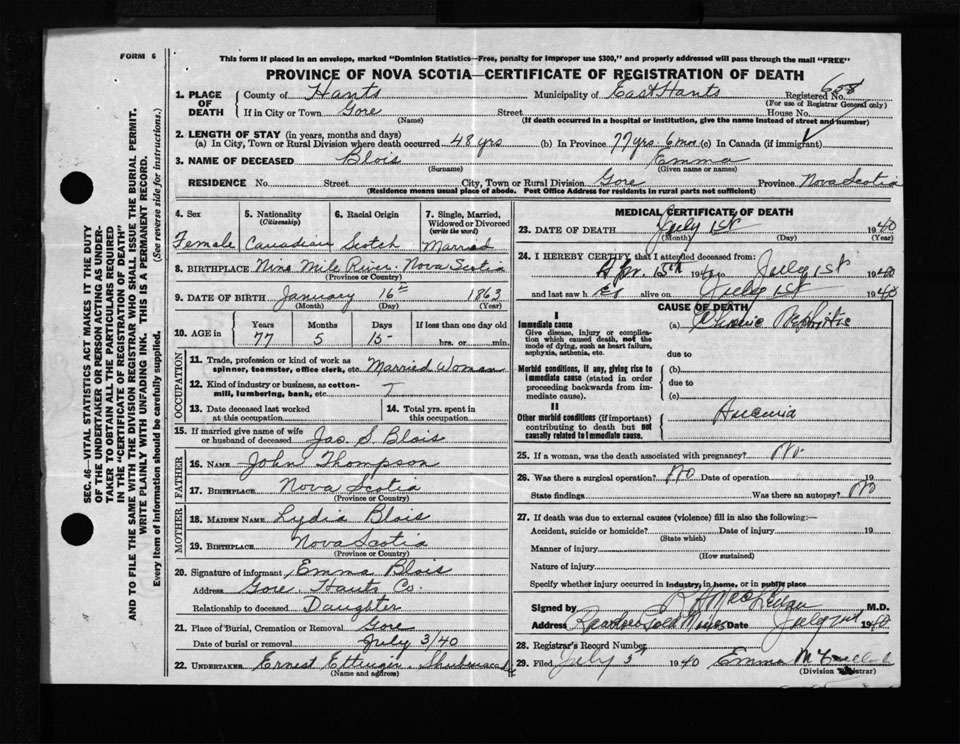 FORM 6
This form if placed in an envelope, marked "Dominion Statistics—Free, penalty for improper use $300," and properly addressed will pass through the mail "FREE"
PROVINCE OF NOVA SCOTIA—CERTIFICATE OF REGISTRATION OF DEATH
1. PLACE OF DEATH County of Hants Municipality of East Hants Registered No. 658
(For use of Registrar General only)
If in City or Town Gore Street House No.
(Name) (If death occurred in a hospital or institution, give the name instead of street and number)
2. LENGTH OF STAY (in years, months and days)
(a) In City, Town or Rural Division where death occurred 48 yrs (b) In Province 77 yrs 6 mos (c) In Canada (if immigrant)
3. NAME OF DECEASED Blois Emma
(Surname) (Given name or names)
RESIDENCE No. Street City, Town or Rural Division Gore Province Nova Scotia
(Residence means usual place of abode. Post Office Address for residents in rural parts not sufficient)
4. Sex Female
5. Nationality (Citizenship) Canadian
6. Racial Origin Scotch
7. Single, Married, Widowed or Divorced (write the word) Married
8. BIRTHPLACE Nine Mile River. Nova Scotia
(Province or Country)
9. DATE OF BIRTH January 16th 1863
(Month) (Day) (Year)
10. AGE in Years 77 Months 5 Days 15 If less than one day old hrs. or min.
OCCUPATION
11. Trade, profession or kind of work as spinner, teamster, office clerk, etc. Married Woman
12. Kind of industry or business, as cotton-mill, lumbering, bank, etc.
13. Date deceased last worked at this occupation
14. Total yrs. spent in this occupation
15. If married give name of wife or husband of deceased Jas. S. Blois
FATHER
16. NAME John Thompson
17. BIRTHPLACE Nova Scotia
(Province or Country)
MOTHER
18. MAIDEN NAME Lydia Blois
19. BIRTHPLACE Nova Scotia
(Province or Country)
20. Signature of informant Emma Blois
Address Gore. Hants Co.
Relationship to deceased Daughter
21. Place of Burial, Cremation or Removal Gore
Date of burial or removal July 3/40
22. UNDERTAKER Ernest Ettinger
(Name and address)
MEDICAL CERTIFICATE OF DEATH
23. DATE OF DEATH July 1st 1940
(Month) (Day) (Year)
24. I HEREBY CERTIFY that I attended deceased from:
Apr. 15th 1940 to July 1st 1940
and last saw her alive on July 1st 1940
CAUSE OF DEATH
I
Immediate cause (a) Chronic Nephritis
Give disease, injury or complication which caused death, not the mode of dying, such as heart failure, asphyxia, asthenia, etc.
due to
Morbid conditions, if any, giving rise to immediate cause (stated in order proceeding backwards from immediate cause).
(b)
due to
(c)
II
Other morbid conditions (if important) contributing to death but not causally related to immediate cause.
25. If a woman, was the death associated with pregnancy? No
26. Was there a surgical operation? No Date of operation 19
State findings Was there an autopsy? No
27. If death was due to external causes (violence) fill in also the following:—
Accident, suicide or homicide? Date of injury 19
(State which)
Manner of injury
(How sustained)
Nature of injury
Specify whether injury occurred in industry, in home, or in public place
Signed by M.D.
Address Gold Mines Date July 2nd 1940
28. Registrar's Record Number
29. Filed July 5 1940 Emma
(Division Registrar)
SEC. 46—VITAL STATISTICS ACT MAKES IT THE DUTY
OF THE UNDERTAKER OR PERSON ACTING AS UNDER-
TAKER TO OBTAIN ALL THE PARTICULARS REQUIRED
IN THE "CERTIFICATE OF REGISTRATION OF DEATH"
AND TO FILE THE SAME WITH THE DIVISION REGISTRAR WHO SHALL ISSUE THE BURIAL PERMIT.
WRITE PLAINLY WITH UNFADING INK. THIS IS A PERMANENT RECORD.
Every item of Information should be carefully supplied. (See reverse side for instructions.)